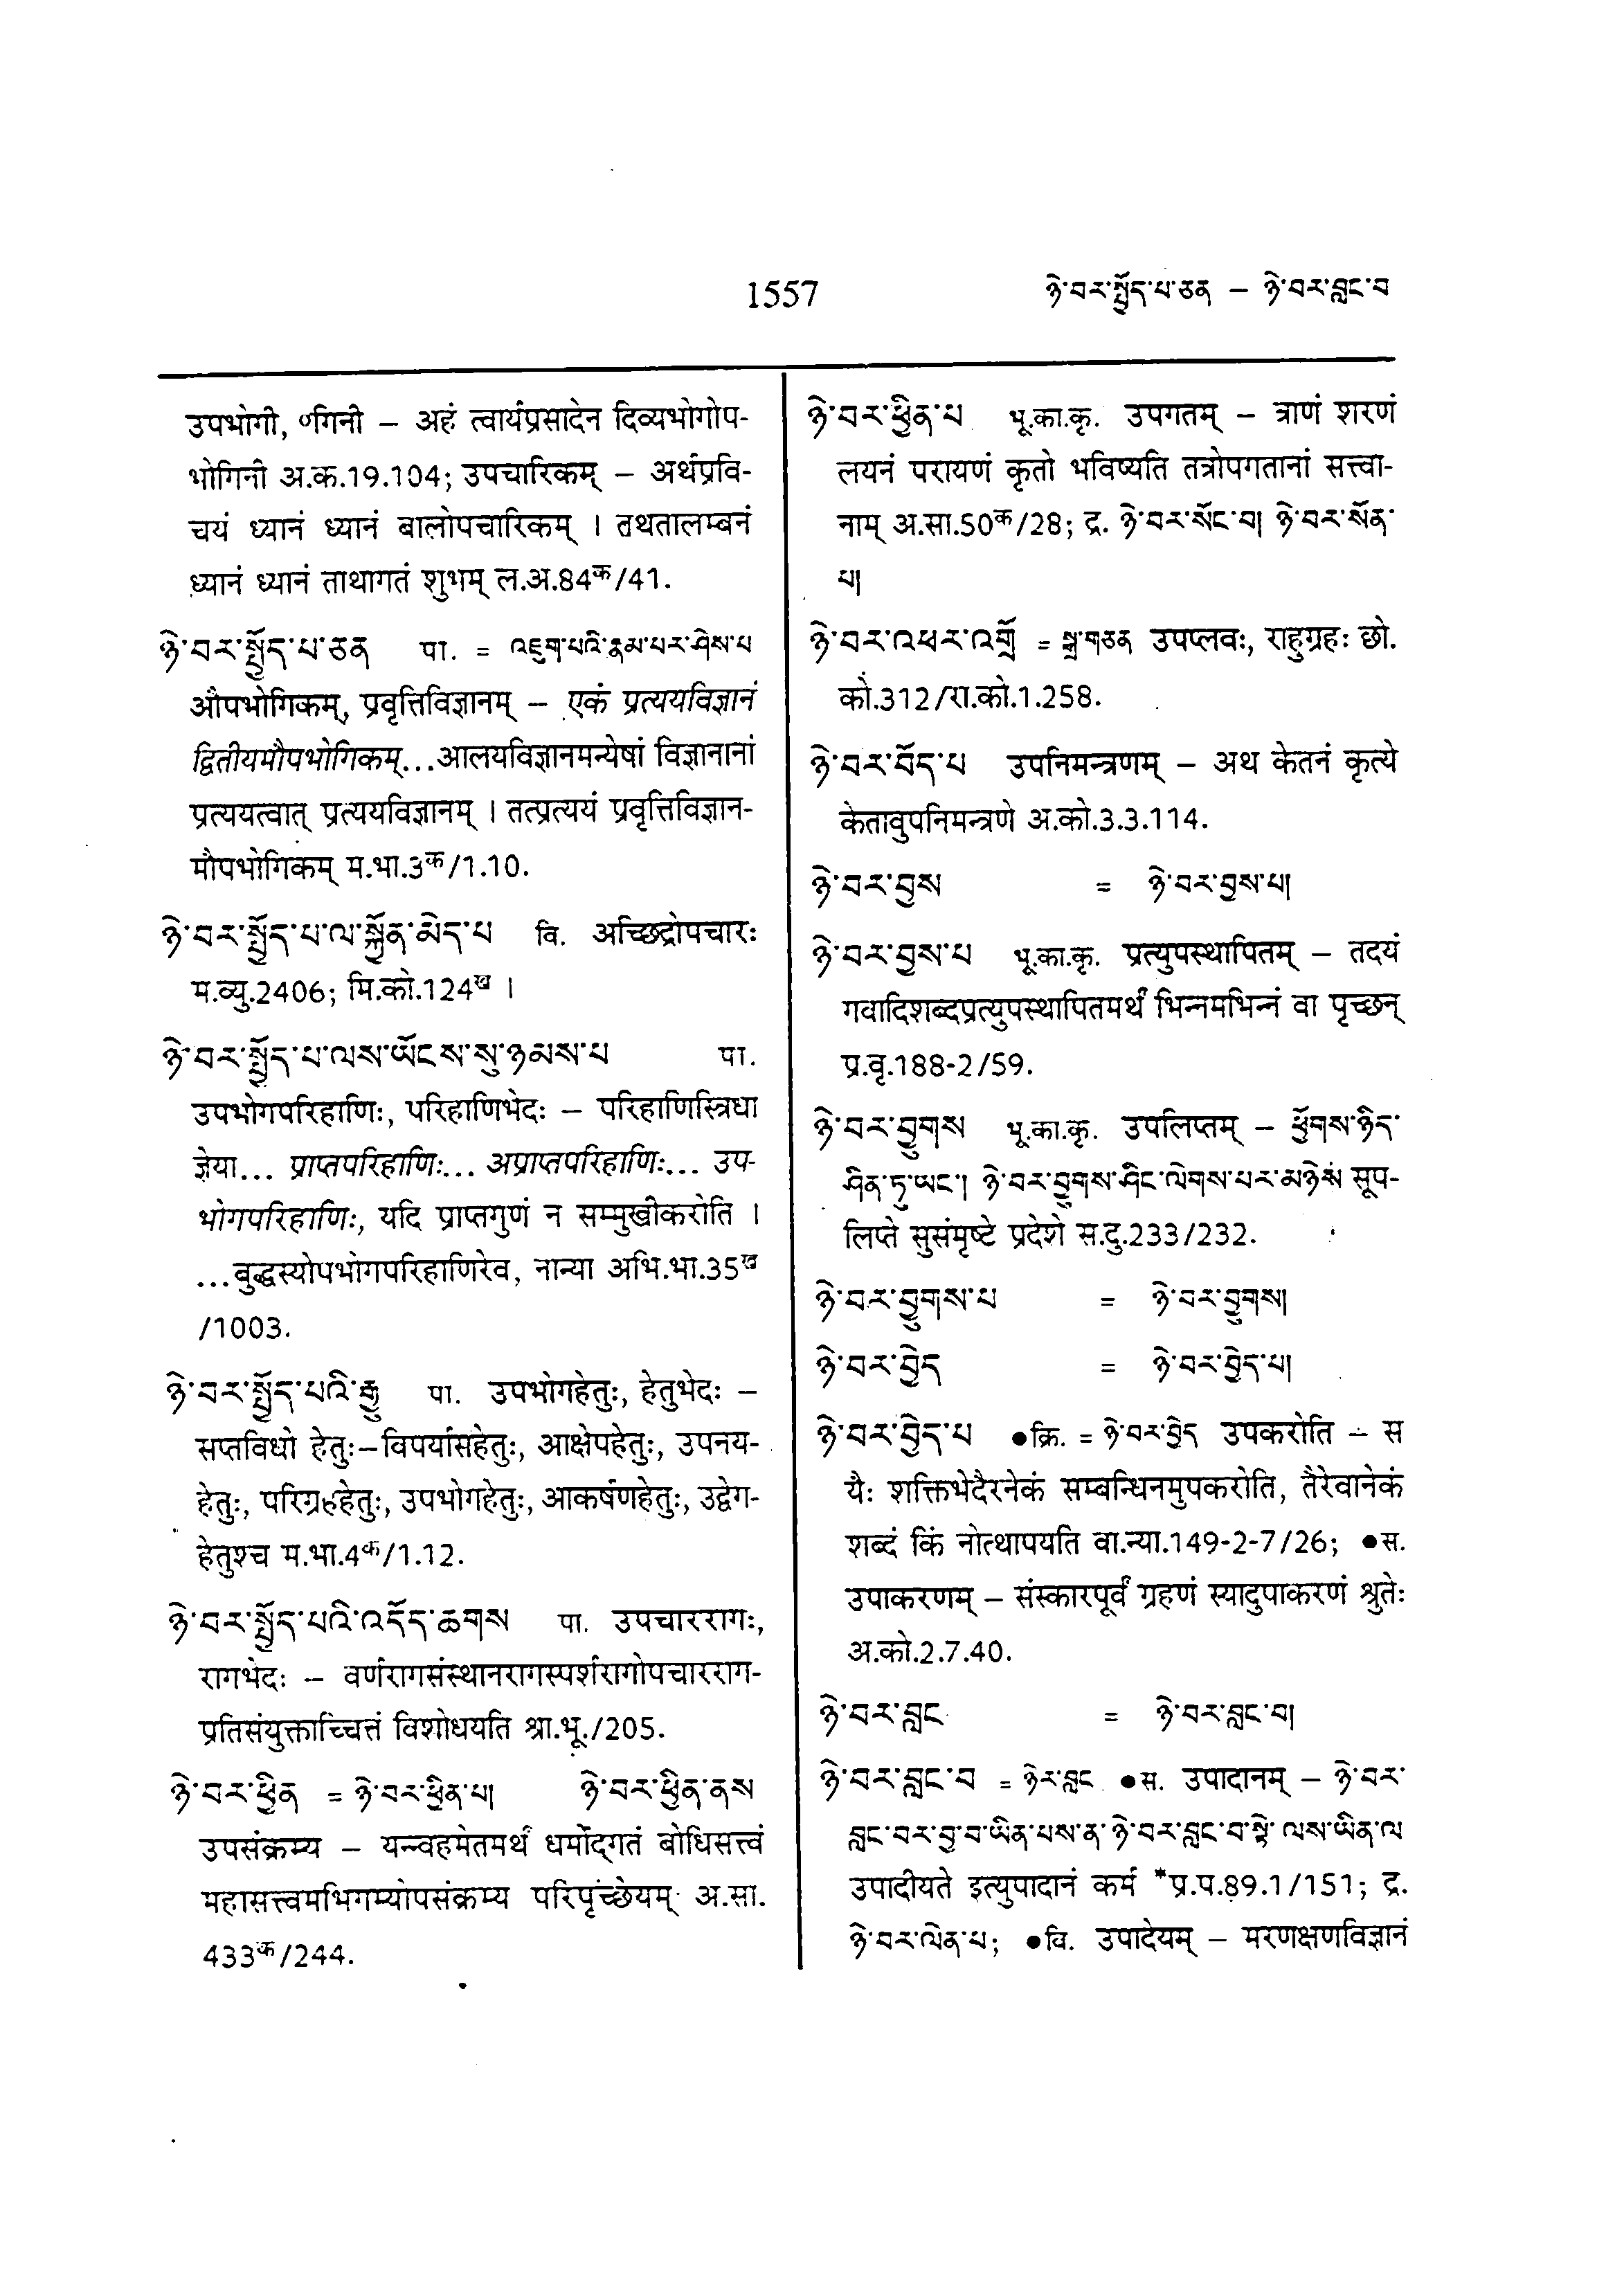 1557
ཉེ་བར་སྤྱོད་པ་ཅན – ཉེ་བར་བླང་བ
उपभोगी, ०गिनी – अहं त्वार्यप्रसादेन दिव्यभोगोप-
भोगिनी अ.क.19.104; उपचारिकम् – अर्थप्रवि-
चयं ध्यानं ध्यानं बालोपचारिकम् । तथतालम्बनं
ध्यानं ध्यानं ताथागतं शुभम् ल.अ.84क/41.
ཉེ་བར་སྤྱོད་པ་ཅན पा. = འཇུག་པའི་རྣམ་པར་ཤེས་པ
औपभोगिकम्, प्रवृत्तिविज्ञानम् – एकं प्रत्ययविज्ञानं
द्वितीयमौपभोगिकम्...आलयविज्ञानमन्येषां विज्ञानानां
प्रत्ययत्वात् प्रत्ययविज्ञानम् । तत्प्रत्ययं प्रवृत्तिविज्ञान-
मौपभोगिकम् म.भा.3क/1.10.
ཉེ་བར་སྤྱོད་པ་ལ་སྐྱོན་མེད་པ वि. अच्छिद्रोपचारः
म.व्यु.2406; मि.को.124ख ।
ཉེ་བར་སྤྱོད་པ་ལས་ཡོངས་སུ་ཉམས་པ पा.
उपभोगपरिहाणिः, परिहाणिभेदः – परिहाणिस्त्रिधा
ज्ञेया... प्राप्तपरिहाणिः... अप्राप्तपरिहाणिः... उप-
भोगपरिहाणिः, यदि प्राप्तगुणं न सम्मुखीकरोति ।
...बुद्धस्योपभोगपरिहाणिरेव, नान्या अभि.भा.35ख
/1003.
ཉེ་བར་སྤྱོད་པའི་རྒྱུ पा. उपभोगहेतुः, हेतुभेदः –
सप्तविधो हेतुः–विपर्यासहेतुः, आक्षेपहेतुः, उपनय-
हेतुः, परिग्रहहेतुः, उपभोगहेतुः, आकर्षणहेतुः, उद्वेग-
हेतुश्च म.भा.4क/1.12.
ཉེ་བར་སྤྱོད་པའི་འདོད་ཆགས पा. उपचाररागः,
रागभेदः – वर्णरागसंस्थानरागस्पर्शरागोपचारराग-
प्रतिसंयुक्ताच्चित्तं विशोधयति श्रा.भू./205.
ཉེ་བར་ཕྱིན = ཉེ་བར་ཕྱིན་པ། ཉེ་བར་ཕྱིན་ནས
उपसंक्रम्य – यन्न्वहमेतमर्थं धर्मोद्गतं बोधिसत्त्वं
महासत्त्वमभिगम्योपसंक्रम्य परिपृच्छेयम् अ.सा.
433क/244.
ཉེ་བར་ཕྱིན་པ भू.का.कृ. उपगतम् – त्राणं शरणं
लयनं परायणं कृतो भविष्यति तत्रोपगतानां सत्त्वा-
नाम् अ.सा.50क/28; द्र. ཉེ་བར་སོང་བ། ཉེ་བར་སོན་
པ།
ཉེ་བར་འཕར་འགྲོ = སྒྲ་གཅན उपप्लवः, राहुग्रहः छो.
को.312/रा.को.1.258.
ཉེ་བར་བོད་པ उपनिमन्त्रणम् – अथ केतनं कृत्ये
केतावुपनिमन्त्रणे अ.को.3.3.114.
ཉེ་བར་བྱས = ཉེ་བར་བྱས་པ།
ཉེ་བར་བྱས་པ भू.का.कृ. प्रत्युपस्थापितम् – तदयं
गवादिशब्दप्रत्युपस्थापितमर्थं भिन्नमभिन्नं वा पृच्छन्
प्र.वृ.188-2/59.
ཉེ་བར་བྱུགས भू.का.कृ. उपलिप्तम् – ཕྱོགས་ཉིད་
ཤིན་ཏུ་ཡང་། ཉེ་བར་བྱུགས་ཤིང་ལེགས་པར་མཉེས सूप-
लिप्ते सुसंमृष्टे प्रदेशे स.दु.233/232.
ཉེ་བར་བྱུགས་པ = ཉེ་བར་བྱུགས།
ཉེ་བར་བྱེད = ཉེ་བར་བྱེད་པ།
ཉེ་བར་བྱེད་པ ●क्रि. = ཉེ་བར་བྱེད उपकरोति – स
यैः शक्तिभेदैरनेकं सम्बन्धिनमुपकरोति, तैरेवानेकं
शब्दं किं नोत्थापयति वा.न्या.149-2-7/26; ●स.
उपाकरणम् – संस्कारपूर्वं ग्रहणं स्यादुपाकरणं श्रुतेः
अ.को.2.7.40.
ཉེ་བར་བླང = ཉེ་བར་བླང་བ།
ཉེ་བར་བླང་བ = ཉེར་བླང ●स. उपादानम् – ཉེ་བར་
བླང་བར་བྱ་བ་ཡིན་པས་ན་ཉེ་བར་བླང་བ་སྟེ་ ལས་ཡིན་ལ
उपादीयते इत्युपादानं कर्म *प्र.प.89.1/151; द्र.
ཉེ་བར་ལེན་པ; ●वि. उपादेयम् – मरणक्षणविज्ञानं